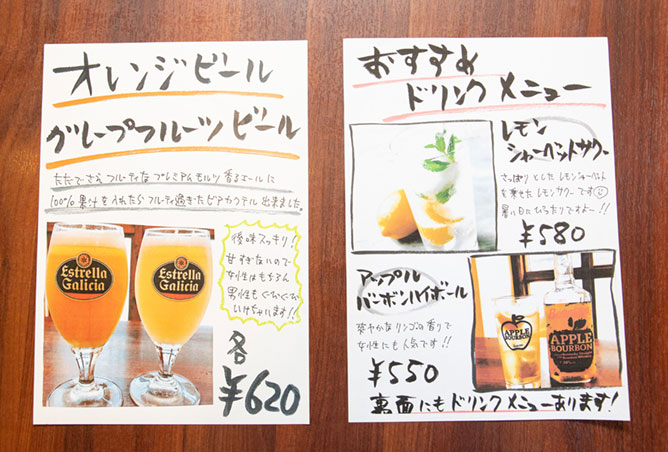 オレンジビール
グレープフルーツビール
ただでさえフルーティなプレミアムモルツ香るエールに
100%果汁を入れたらフルーティ過ぎたビアカクテル出来ました。
Estrella
Galicia
Estrella
Galicia
後味スッキリ!
甘すぎないので
女性はもちろん
男性もぐびぐび
いけちゃいます!!
各
¥620
おすすめ
ドリンクメニュー
レモン
シャーベットサワー
さっぱりとしたレモンシャーベット
を乗せたレモンサワーです
暑い日にぴったりですよ〜!!
¥580
アップル
バーボンハイボール
爽やかなリンゴの香りで
女性にも人気です!!
¥550
APPLE
BOURBON
APPLE
BOURBON
裏面にもドリンクメニューあります!